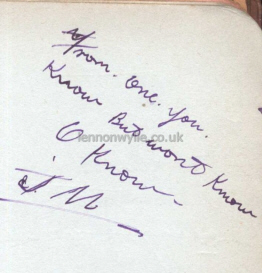 From. one. you.
Know But wont Know
lennonwylie.co.uk
Know